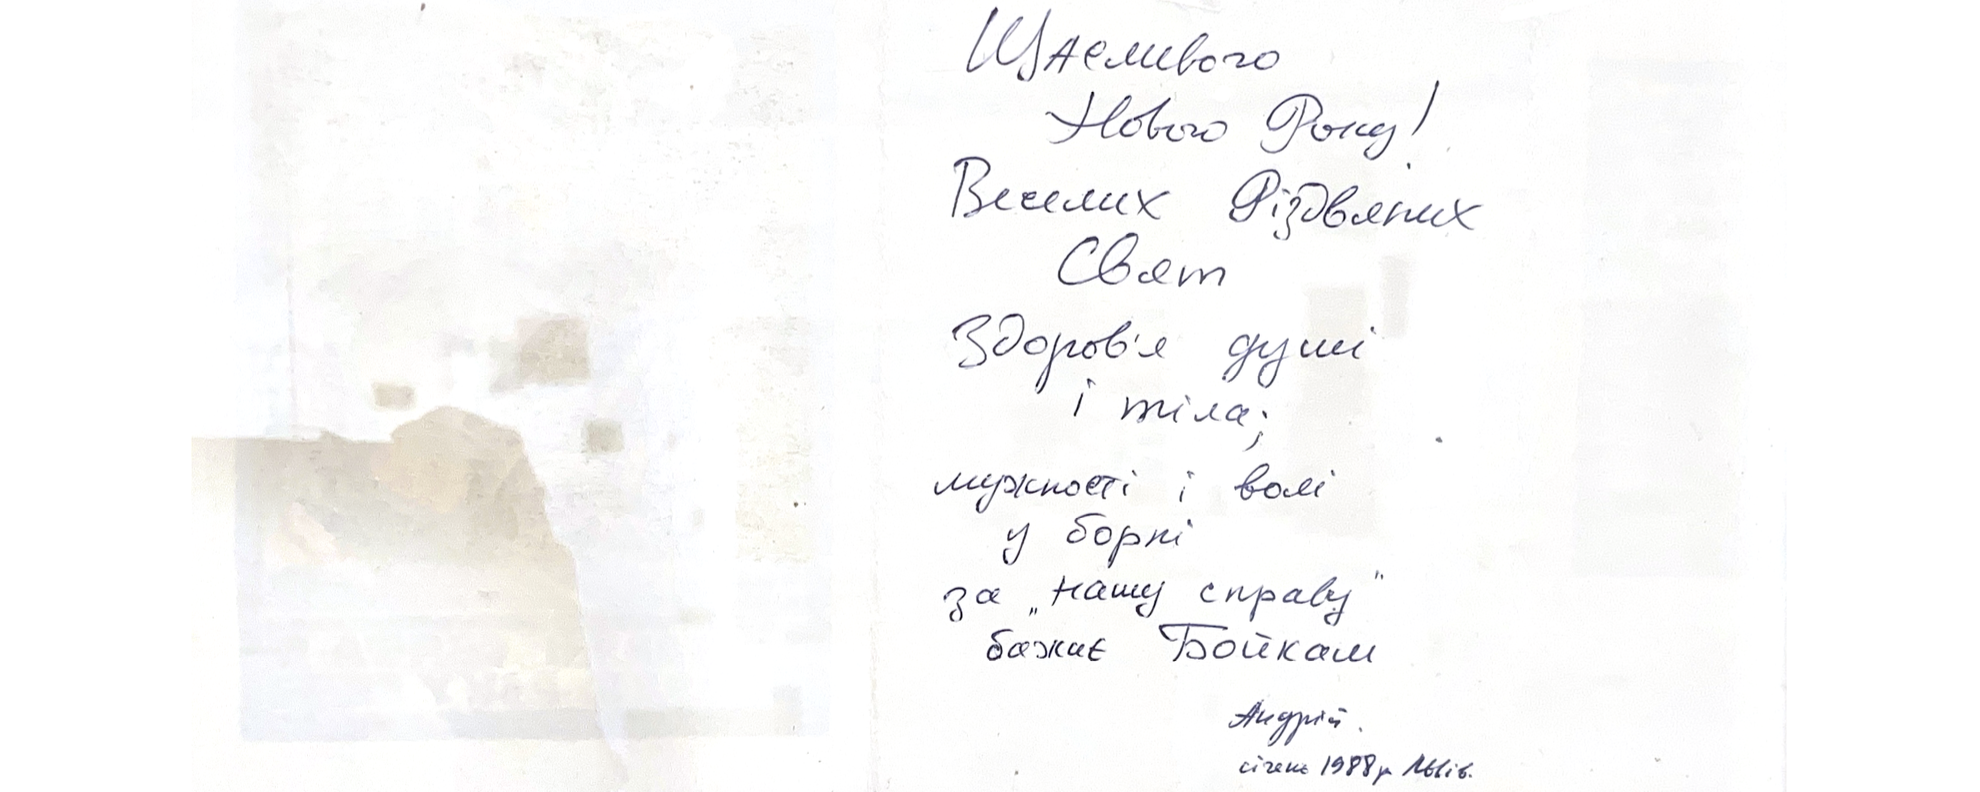 Щасливого
Нового Року!
Веселих Різдвяних
Свят
Здоров'я душі
і тіла;
мужності і волі
у борні
за „нашу справу"
бажає Бойкам
Андрій.
січень 1988р Львів.